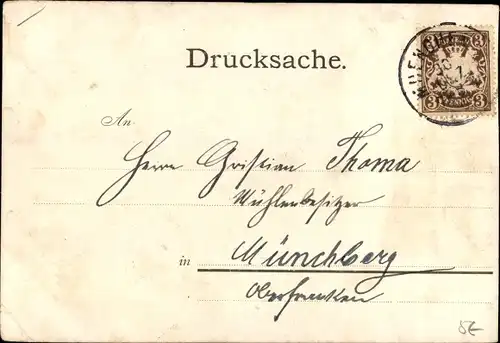 Drucksache.
MUENCHEN
3 PFENNIG 3
An
Herrn Christian Thoma
Mühlenbesitzer
in Münchberg
Oberfranken